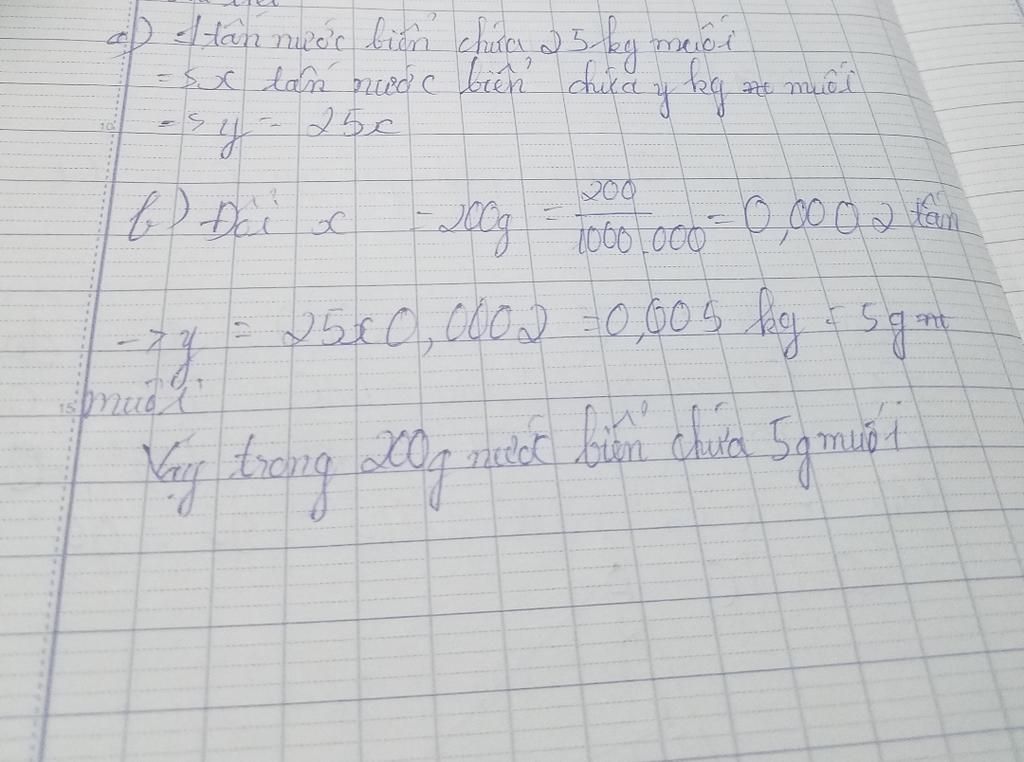 a) 1 tấn nước biển chứa 25 kg muối
=> x tấn nước biển chứa y kg muối
=> y = 25x
b) Đổi x = 200g = 200/1000.000 = 0,0002 tấn
-> y = 25x0,0002 = 0,005 kg = 5g
muối.
Vậy trong 200g nước biển chứa 5g muối
10
15